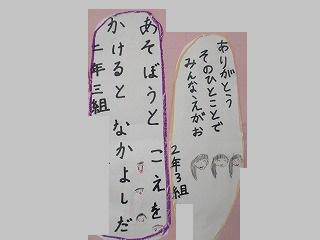 ありがとう
そのひとことで
みんなえがお
2年3組
あそぼうと こえを
かけると なかよしだ
二年三組